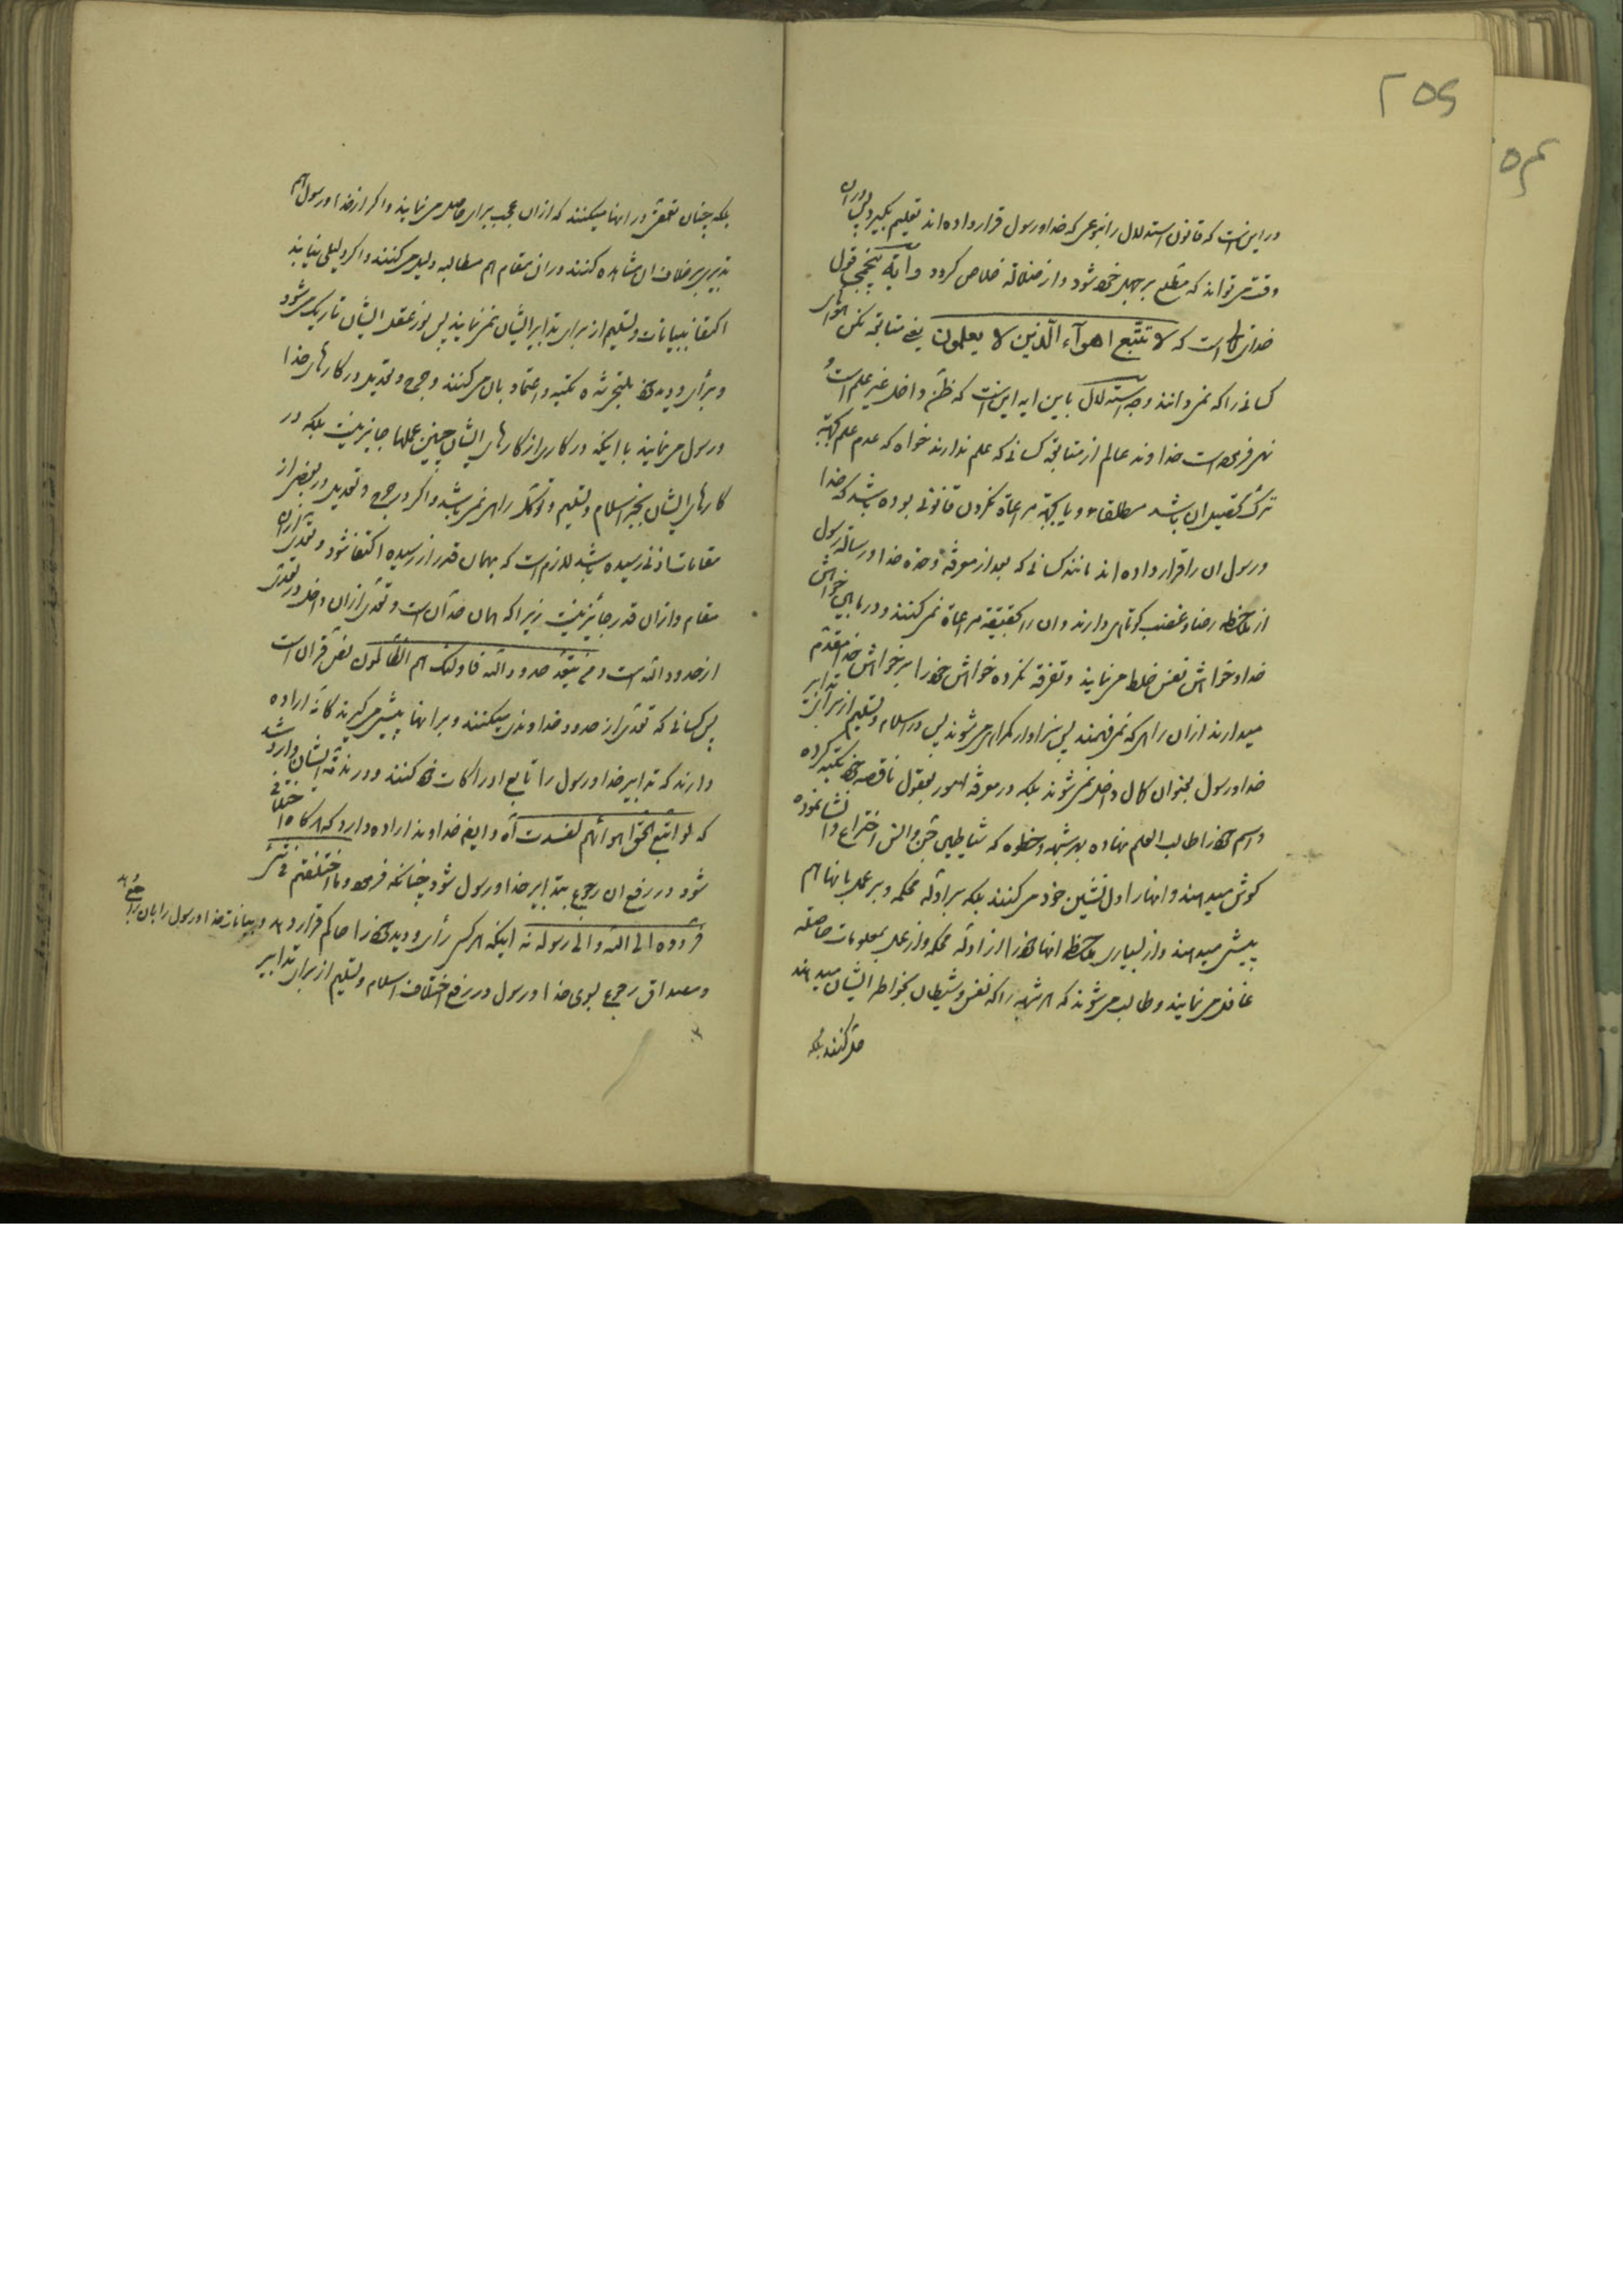 ۲۵۶
در این است که قانون استدلال را بنوعی که خدا و رسول قرار داده‌اند تعلیم بگیرد پس در آن
وقت می‌تواند که مطلع بر جهل خود شود و از ضلالة خلاص کردد و آیة پنجمی قول
خدای تعالی است که لا تتّبع اهوآء الّذین لا یعلمون یعنی متابعة نکن هواهای
کسانی را که نمی‌دانند وجه استدلال باین ایه این است که ظنّ داخل غیر علم است و
نهی فرموده است خداوند عالم از متابعة کسانی که علم ندارند خواه که عدم علم بجهة
ترک تحصیل ان باشد مطلقا و یا بجهة مراعاة نکردن قانونی بوده باشد که خدا
و رسول ان را قرار داده‌اند مانند کسانی که بعد از معرفة وحدة خدا و رسالة رسول
از ملاحظه رضا و غضب کوتاهی دارند و ان را بحقیقة مراعاة نمی‌کنند و در مابین خواهش
خدا و خواهش نفس خلط می‌نمایند و تفرقه نکرده خواهش خود را بر خواهش خدا مقدّم
میدارند از ان راهی که نمی‌فهمند پس سزاوار کمراهی می‌شوند پس در اسلام و تسلیم از برای تدابیر
خدا و رسول بعنوان کمال داخل نمی‌شوند بلکه در معرفة امور بعقول ناقصه خود تکیه کرده
و اسم خود را طالب العلم نهاده بهر شبهه و خطوه که شیاطین جنّ و انس اختراع و انشا نموده
کوش میدهند و انها را دل نشین خود می‌کنند بلکه بر ادلّه محکمه و بر عمل بانها هم
پیشی میدهند و از بسیاری ملاحظه انها خود را از ادلّه محکمه و از عمل بمعلومات حاصله
غافل می‌نمایند و طالب می‌شوند که هر شبهه را که نفس و شیطان بخواطر ایشان میدهند
حل کنند بلکه
بلکه چنان تعمّق در انها میکنند که از ان عجب برای حاصل می‌نمایند و اکر از خدا و رسول هم
تدبیری بر خلاف ان مشاهده کنند در ان مقام هم مطالبه دلیل می‌کنند و اکر دلیلی نیابند
اکتفا ببیانات و تسلیم از برای تدابیر ایشان نمی‌نمایند پس نور عقل ایشان تاریک می‌شود
و برأی و دیدن خود ملتجی شده تکیه و اعتماد بان می‌کنند و جرح و تعدیل در کارهای خدا
و رسول می‌نمایند با اینکه در کاری از کارهای ایشان چنین عملها جایز نیست بلکه در
کارهای ایشان بجز اسلام و تسلیم و توکّل راهی نمی‌باشد و اکر در جرح و تعدیل در بعضی از
مقامات اذنی رسیده باشد لازم است که بهمان قدر از رسیده اکتفا شود و تعدّی از ان
مقام و از ان قدر جائز نیست زیرا که همان حدّ آن است و تعدّی از ان داخل در تعدّی
از حدود الله است و من یتعدّ حدود الله فاولئک هم الظّالمون نصّ قران است
پس کسانی که تعدّی از حدود خداوندی میکنند و بر انها پیشی می‌کیرند کانّه اراده
دارند که تدابیر خدا و رسول را تابع ادراکات خود کنند و در مذمّة ایشان وارد شد
که لو اتّبع الحقّ اهوائهم لفسدت آه و ایضا خداوند اراده دارد که هرکاه اختلافی
شود در رفع ان رجوع بتدابیر خدا و رسول شود چنانکه فرموده و ما اختلفتم فی شئ
فردوه الی الله و الی رسوله نه اینکه هر کس رأی و دیدن خود را حاکم قرار دهد و بیانات خدا و رسول را بان راجع نماید
و مصداق رجوع بسوی خدا و رسول در رفع اختلاف اسلام و تسلیم از برای تدابیر